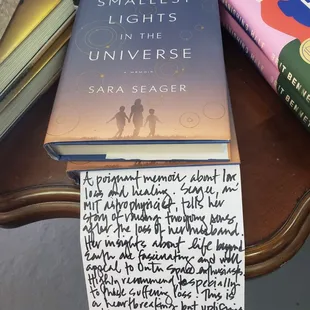 SMALLEST
LIGHTS
IN THE
UNIVERSE
SARA SEAGER
IT BENNE
IT BENNE
A poignant memoir about love
loss and healing. Seager, an
MIT astrophysicist tells her
story of raising two young sons
after the loss of her husband.
Her insights about life beyond
Earth are fascinating and will
appeal to outer space enthusiasts.
Highly recommend, especially
to those suffering loss. This is
a heartbreaking but uplifting